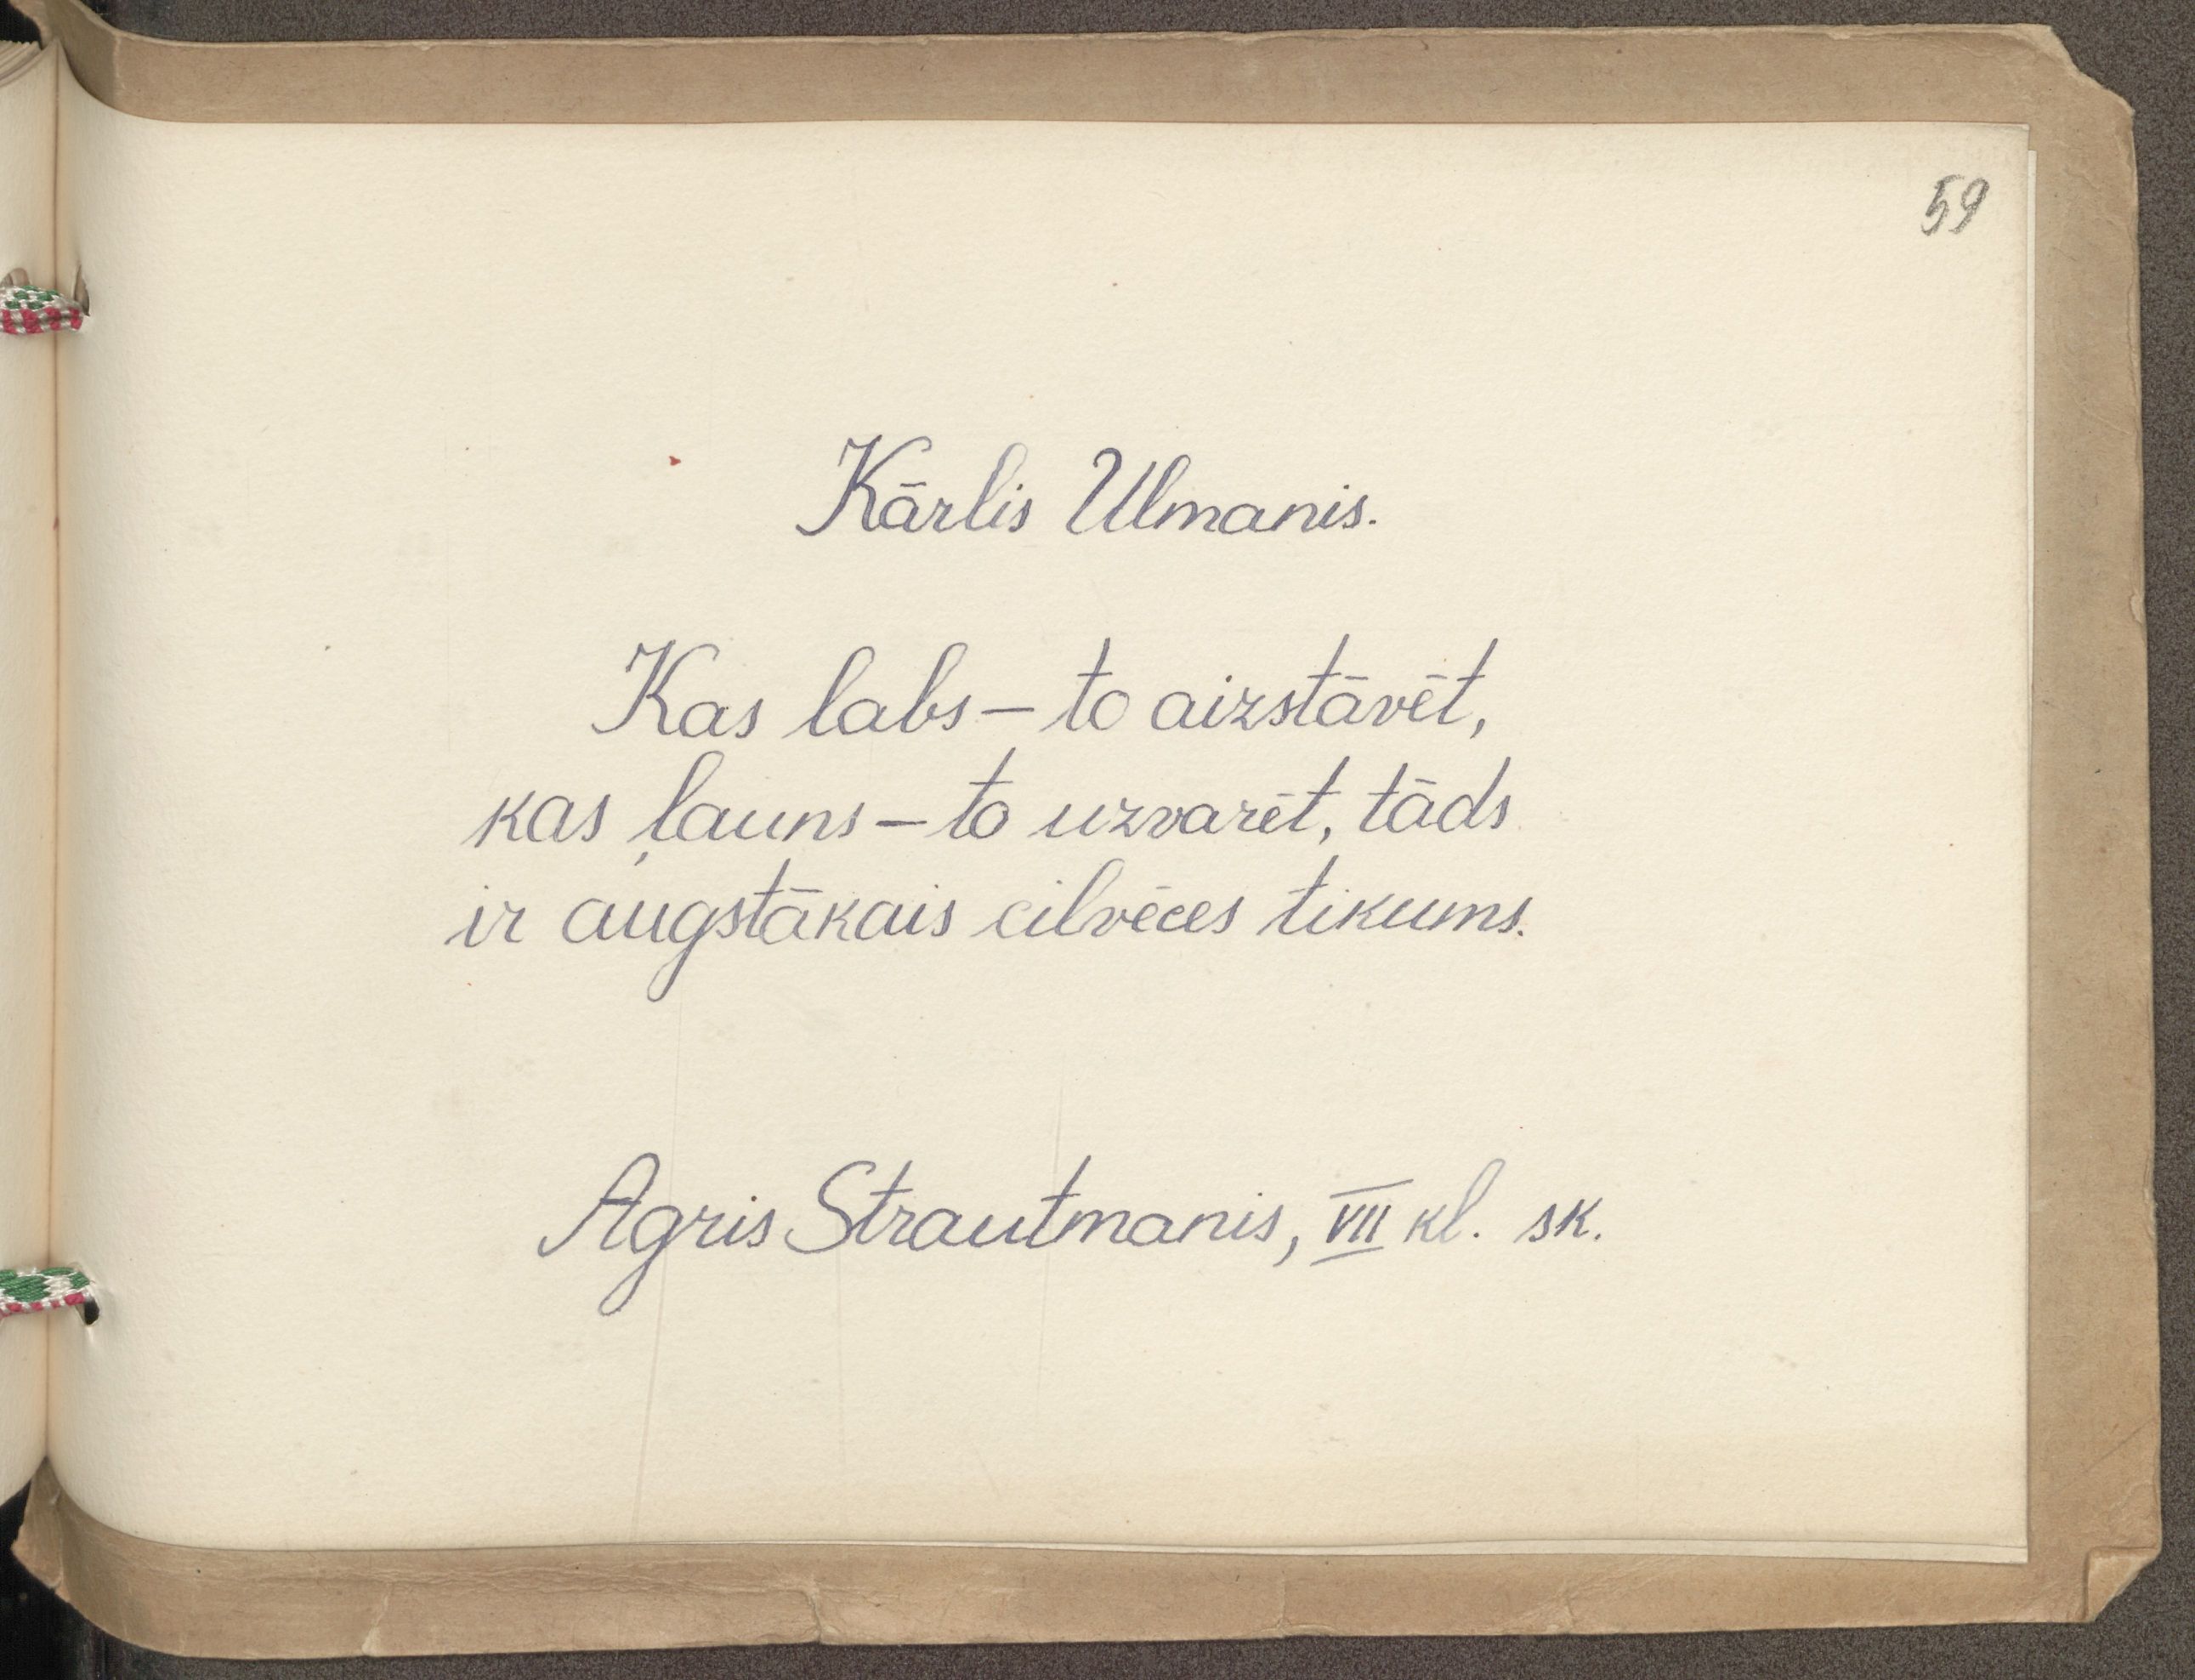 59
Kārlis Ulmanis.
Kas labs – to aizstāvēt,
kas ļauns – to uzvarēt, tāds
ir augstākais cilvēces tikums.
Agris Strautmanis, VII kl. sk.